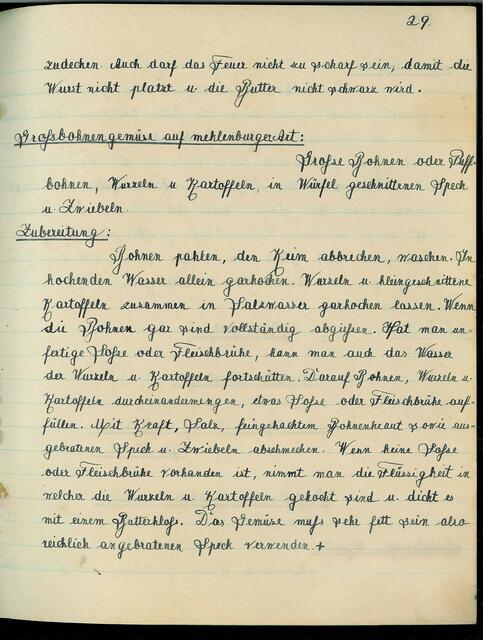 29.
zudechen. Auch darf das Feuer nicht zu scharf sein, damit die
Wurst nicht platzt u. die Butter nicht schwarz wird.
Großbohnengemüse auf mehlenburger Art:
Große Bohnen oder Puff-
bohnen, Wurzeln u Kartoffeln, in Würfel geschnittenen Speck
u. Zwiebeln.
Zubereitung:
Bohnen pahlen, den Keim abbrechen, waschen. In
kochenden Wasser allein garkochen. Wurzeln u. kleingeschnittene
Kartoffeln zusammen in Salzwasser garkochen lassen. Wenn
die Bohnen gar sind vollständig abgießen. Hat man un-
fertige Soße oder Fleischbrühe, kann man auch das Wasser
der Wurzeln u. Kartoffeln fortschütten. Darauf Bohnen, Wurzeln u.
Kartoffeln durcheinandermengen, etwas Soße oder Fleischbrühe auf-
füllen. Mit Kraft, Salz, feingehacktem Bohnenkraut sowie aus-
gebratenen Speck u. Zwiebeln abschmecken. Wenn keine Soße
oder Fleischbrühe vorhanden ist, nimmt man die Flüssigkeit in
welcher die Wurzeln u. Kartoffeln gekocht sind u. dickt es
mit einem Butterkloß. Das Gemüse muß sehr fett sein also
reichlich angebratenen Speck verwenden. +